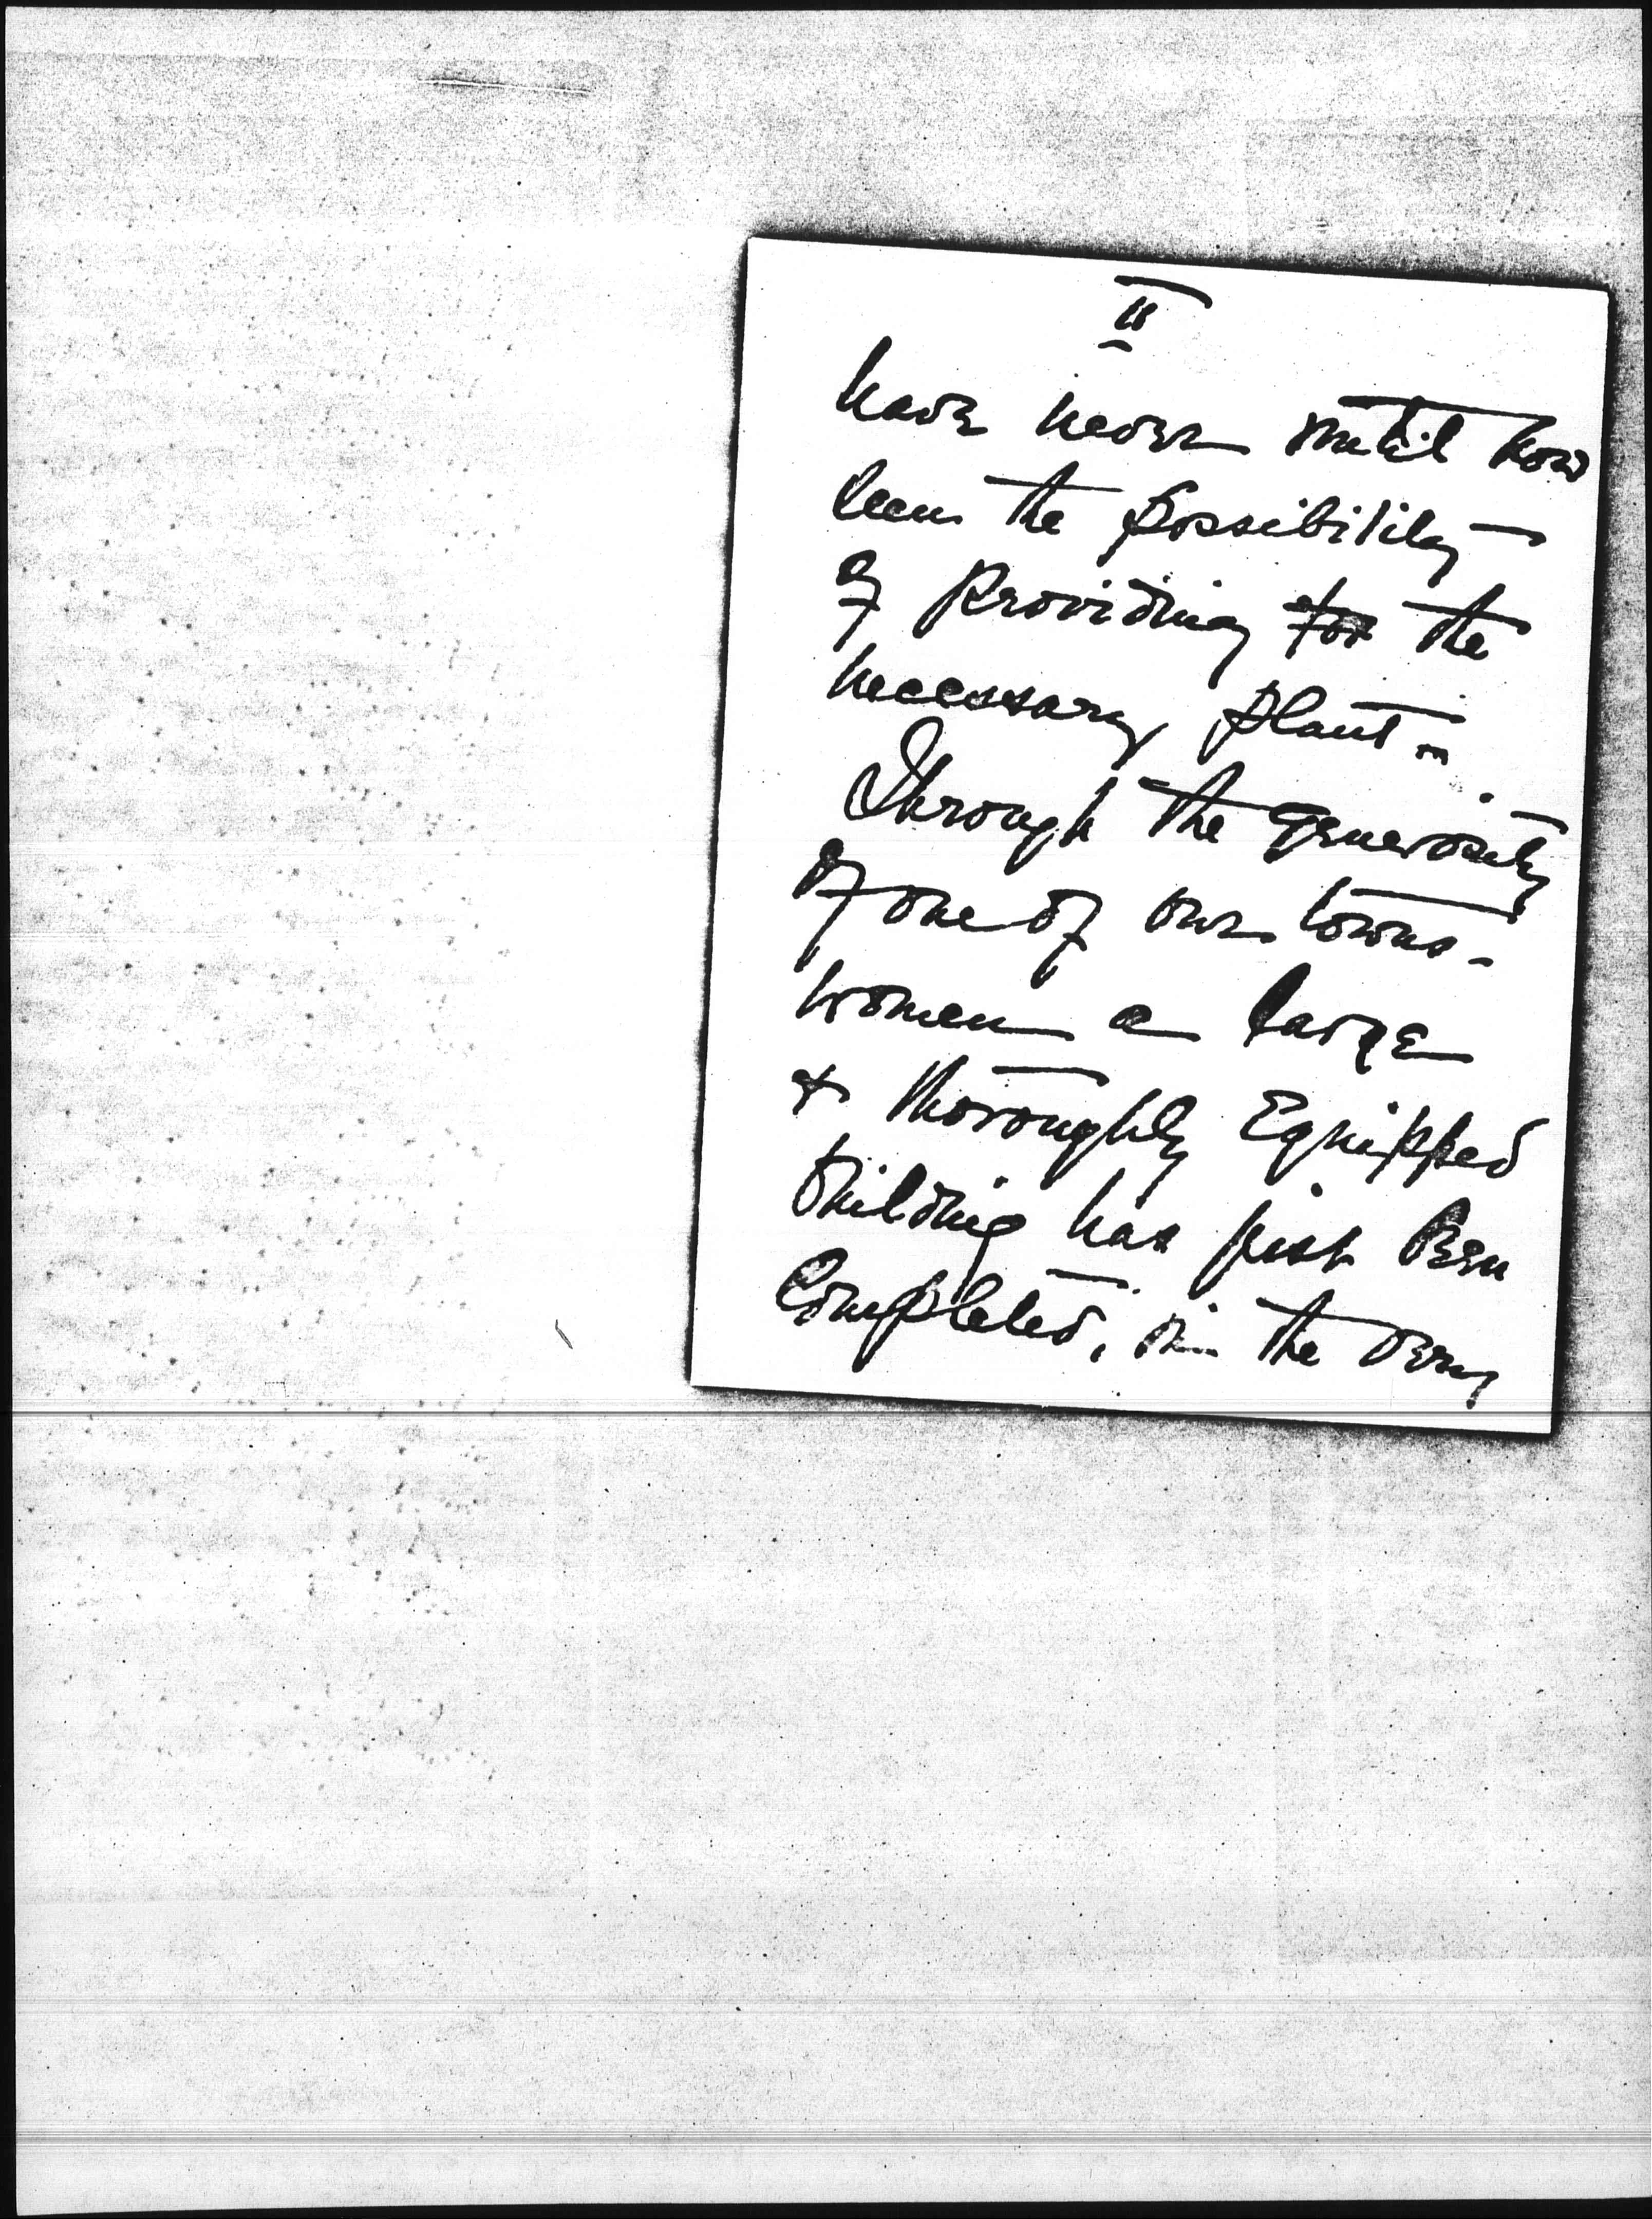 II
have never until now
seen the possibility
of providing for the
necessary plant.
Through the generosity
of one of our towns-
women a large
& thoroughly Equipped
building has just been
Completed, in the very